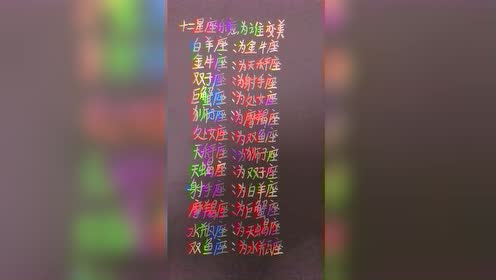 十二星座 ,为谁变美
白羊座:为金牛座
金牛座:为天秤座
双子座:为射手座
巨蟹座:为处女座
狮子座:为摩羯座
处女座:为双鱼座
天秤座:为狮子座
天蝎座:为双子座
射手座:为白羊座
摩羯座:为巨蟹座
水瓶座:为天蝎座
双鱼座:为水瓶座